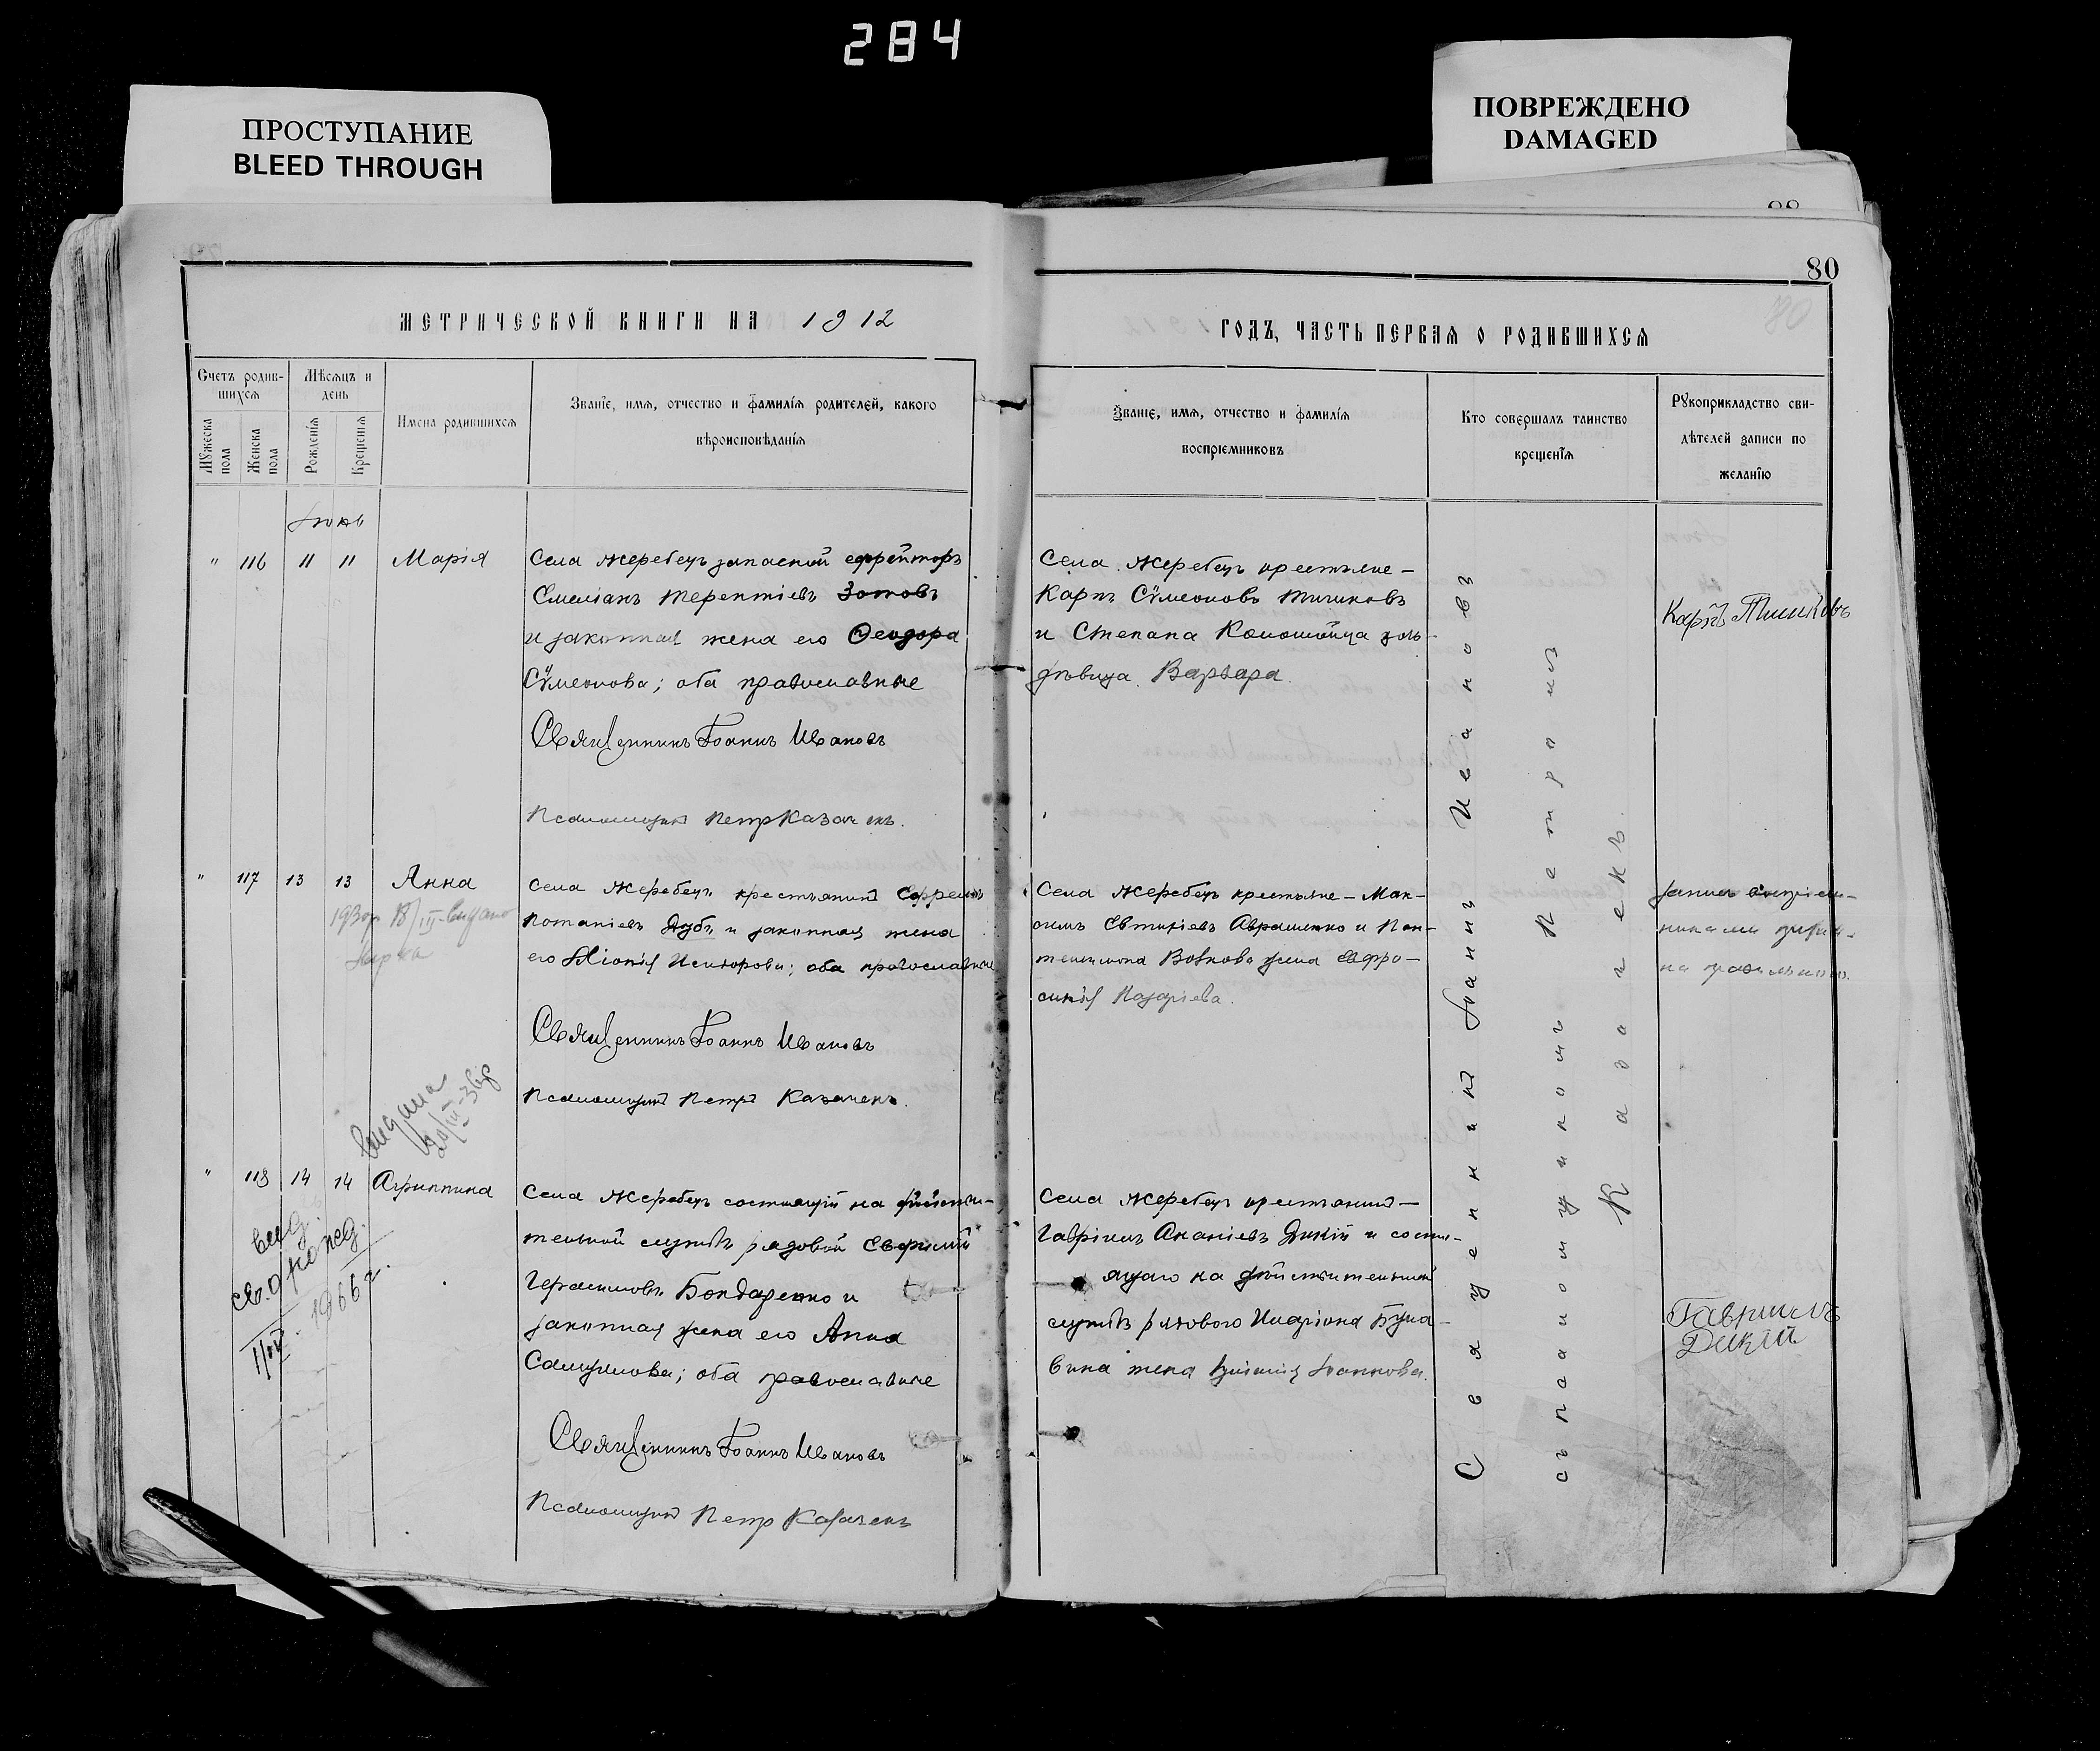 284
ПРОСТУПАНИЕ
BLEED THROUGH
ПОВРЕЖДЕНО
DAMAGED
80
МЕТРИЧЕСКОЙ КНИГИ НА 1912
ГОДЪ, ЧАСТЬ ПЕРВАЯ О РОДИВШИХСЯ
80
Счетъ родив-
шихся
Мужеска пола
Женска пола
Мѣсяцъ и
день
Рожденія
Крещенія
Имена родившихся
Званіе, имя, отчество и фамилія родителей, какого
вѣроисповѣданія
Званіе, имя, отчество и фамилія
воспріемниковъ
Кто совершалъ таинство
крещенія
Рукоприкладство сви-
дѣтелей записи по
желанію
Іюнь
" 116 11 11 Марія
Села Жеребецъ запасной ефрейторъ
Емеліанъ Терентіевъ Зотовъ
и законная жена его Ѳеодора
Сѵмеонова; оба православные
Священникъ Іоаннъ Ивановъ
Псаломщикъ Петръ Казачекъ.
Села Жеребецъ крестьяне –
Карпъ Сѵмеоновъ
и Степана
дѣвица Варвара.
Карпъ
" 117 13 13 Анна
1930 г. 18/III видано
Села Жеребецъ крестьянинъ Ефремъ
Потапіевъ Дубъ и законная жена
его Исидорова; оба православные
Священникъ Іоаннъ Ивановъ
Псаломщикъ Петръ Казачекъ.
Села Жеребецъ крестьяне – Мак-
симъ Евтихіевъ Авраменко и Пан-
телеимона Волкова жена Евфро-
синія Назаріева.
видана
" 118 14 14 Агриппина
выд.
св. о рожд.
1966 г.
Села Жеребецъ состоящій на дѣйстви-
тельной службѣ рядовой Евфимій
Герасимовъ Бондаренко и
законная жена его Анна
Самуилова; оба православные
Священникъ Іоаннъ Ивановъ
Псаломщикъ Петръ Казачекъ
Села Жеребецъ крестьянинъ –
Гавріилъ Ананіевъ Дикій и состо-
ящаго на дѣйствительной
службѣ рядового Иларіона
жена Іоаннова.
Гавриилъ
Дикій
Священникъ Іоаннъ Ивановъ
съ псаломщикомъ Петромъ
Казачекъ.